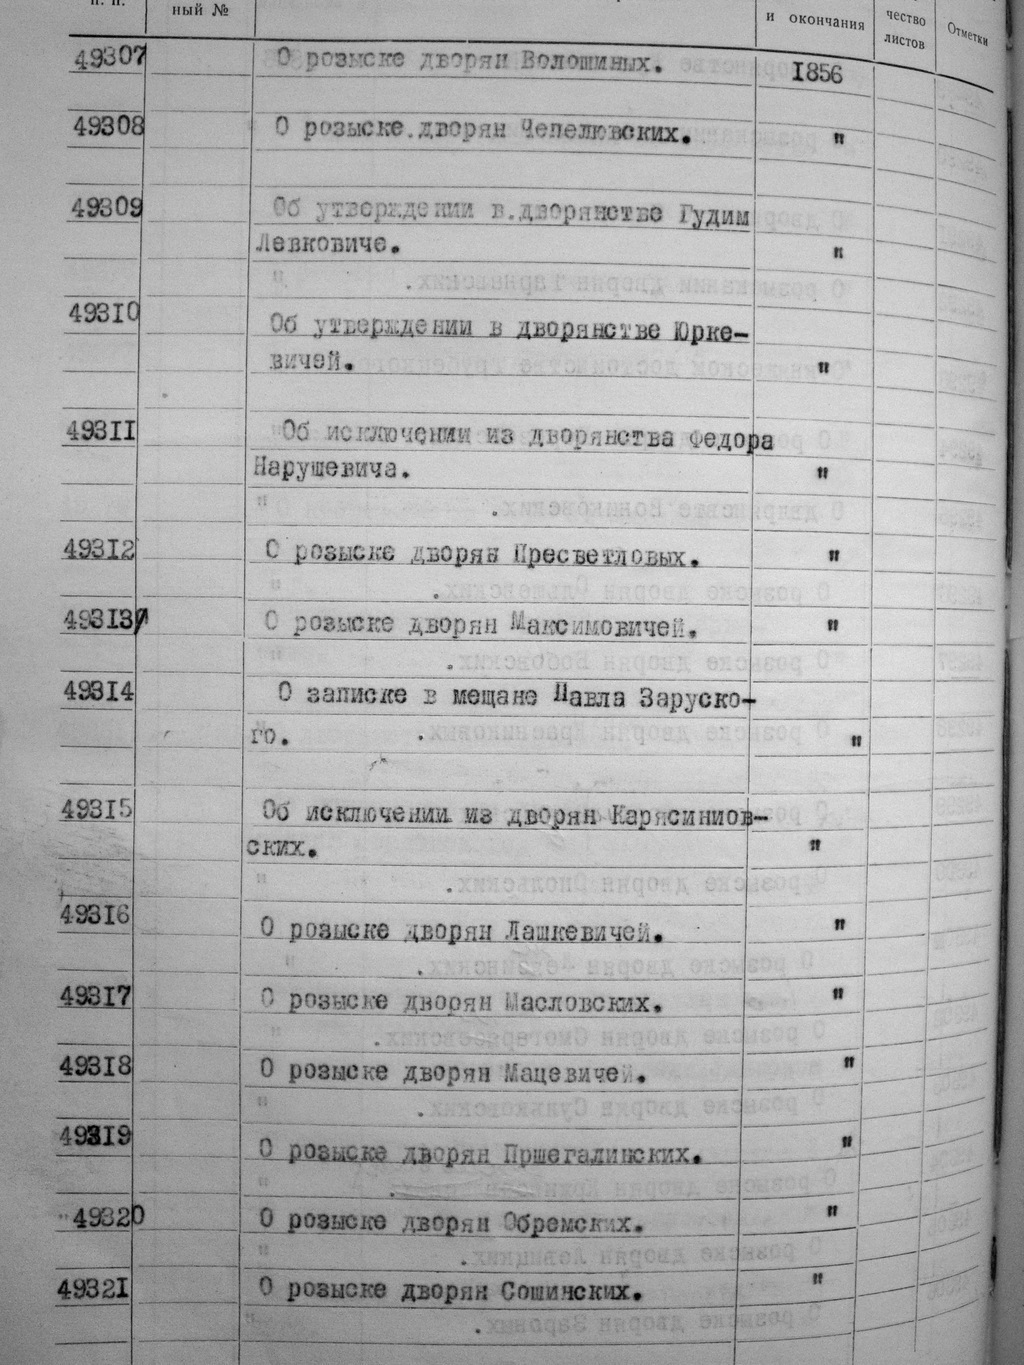 п. п.
ный №
и окончания
чество
листов
Отметки
49307 О розыске дворян Волошиных. 1856
49308 О розыске дворян Чепелювских. "
49309 Об утверждении в дворянстве Гудим
Левковиче. "
49310 Об утверждении в дворянстве Юрке-
вичей. "
49311 Об исключении из дворянства Федора
Нарушевича. "
49312 О розыске дворян Пресветловых. "
49313 О розыске дворян Максимовичей. "
49314 О записке в мещане Павла Заруско-
го. "
49315 Об исключении из дворян Карясиниов-
ских. "
49316 О розыске дворян Лашкевичей. "
49317 О розыске дворян Масловских. "
49318 О розыске дворян Мацевичей. "
49319 О розыске дворян Пршегалинских. "
49320 О розыске дворян Обремских. "
49321 О розыске дворян Сошинских. "